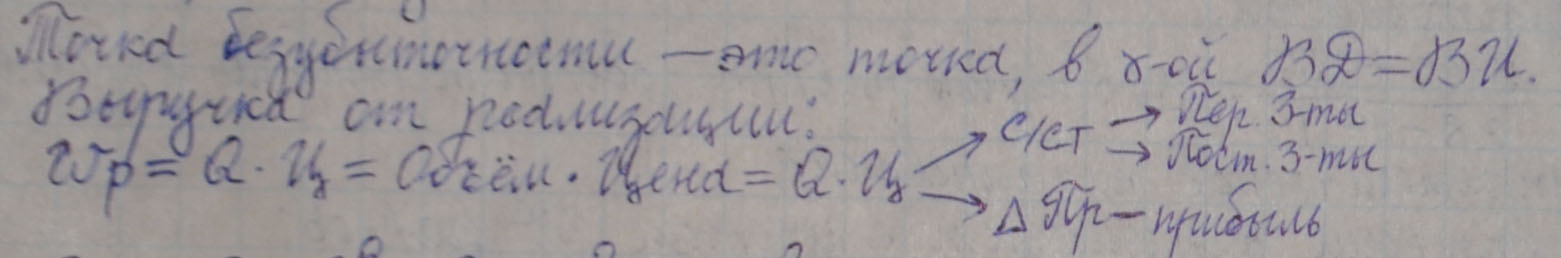 Точка безубыточности — это точка, в к-ой ВД = ВИ.
Выручка от реализации:
Wр = Q · Ц = Объём · Цена = Q · Ц → С/СТ → Пер. З-ты
→ Пост. З-ты
→ Δ Пр — прибыль